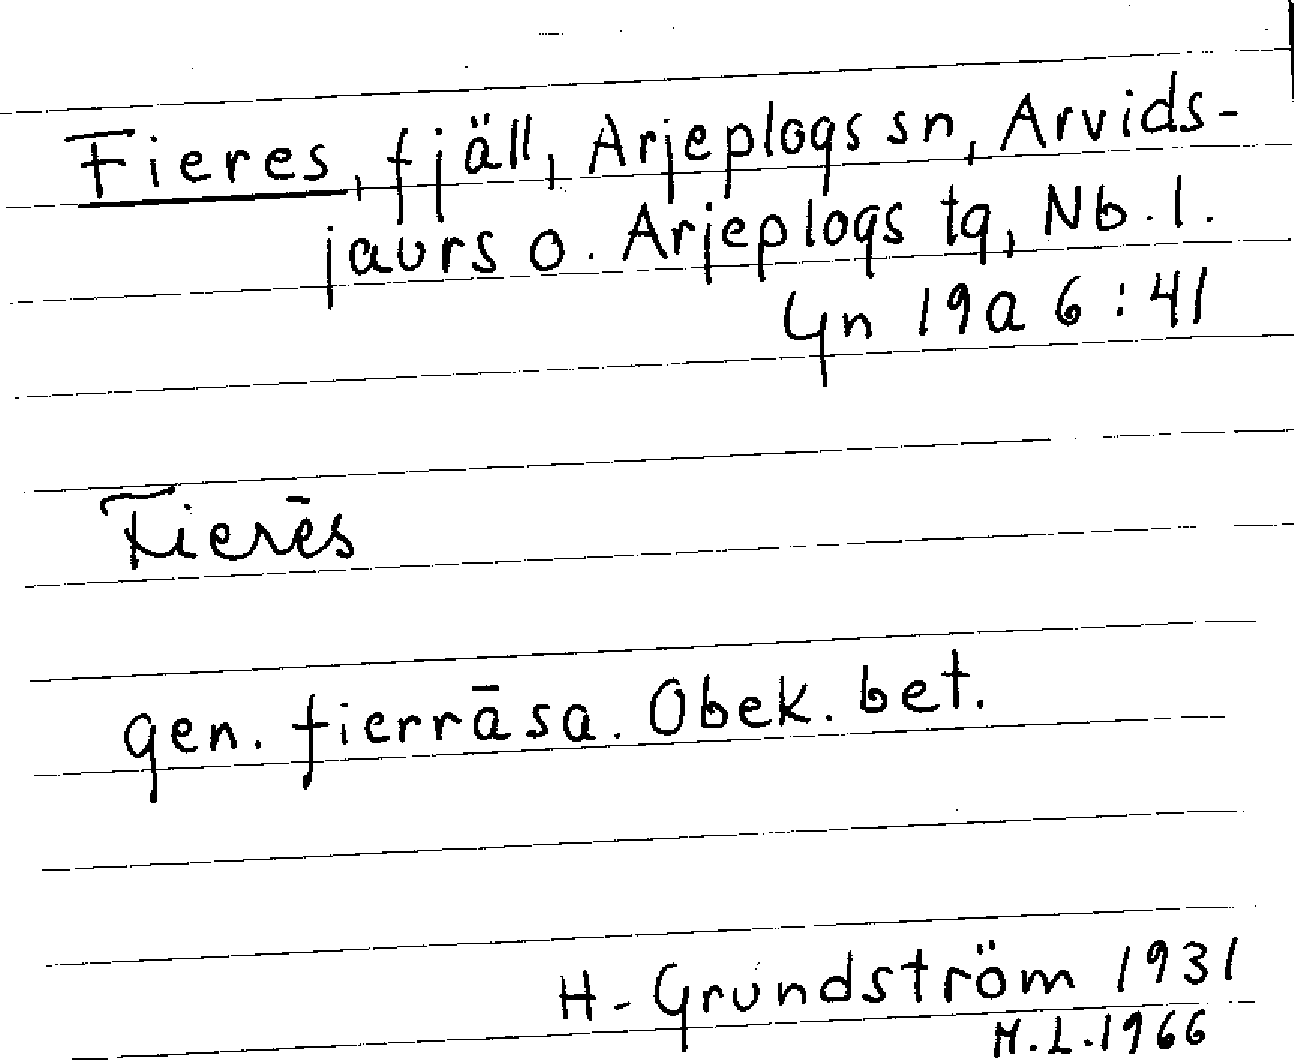 Fieres, fjäll, Arjeplogs sn, Arvids-
jaurs o. Arjeplogs tg, Nb. l.
Gn 19a 6:41
Fierēs
gen. fierrāsa. Obek. bet.
H. Grundström 1931
M.L. 1966